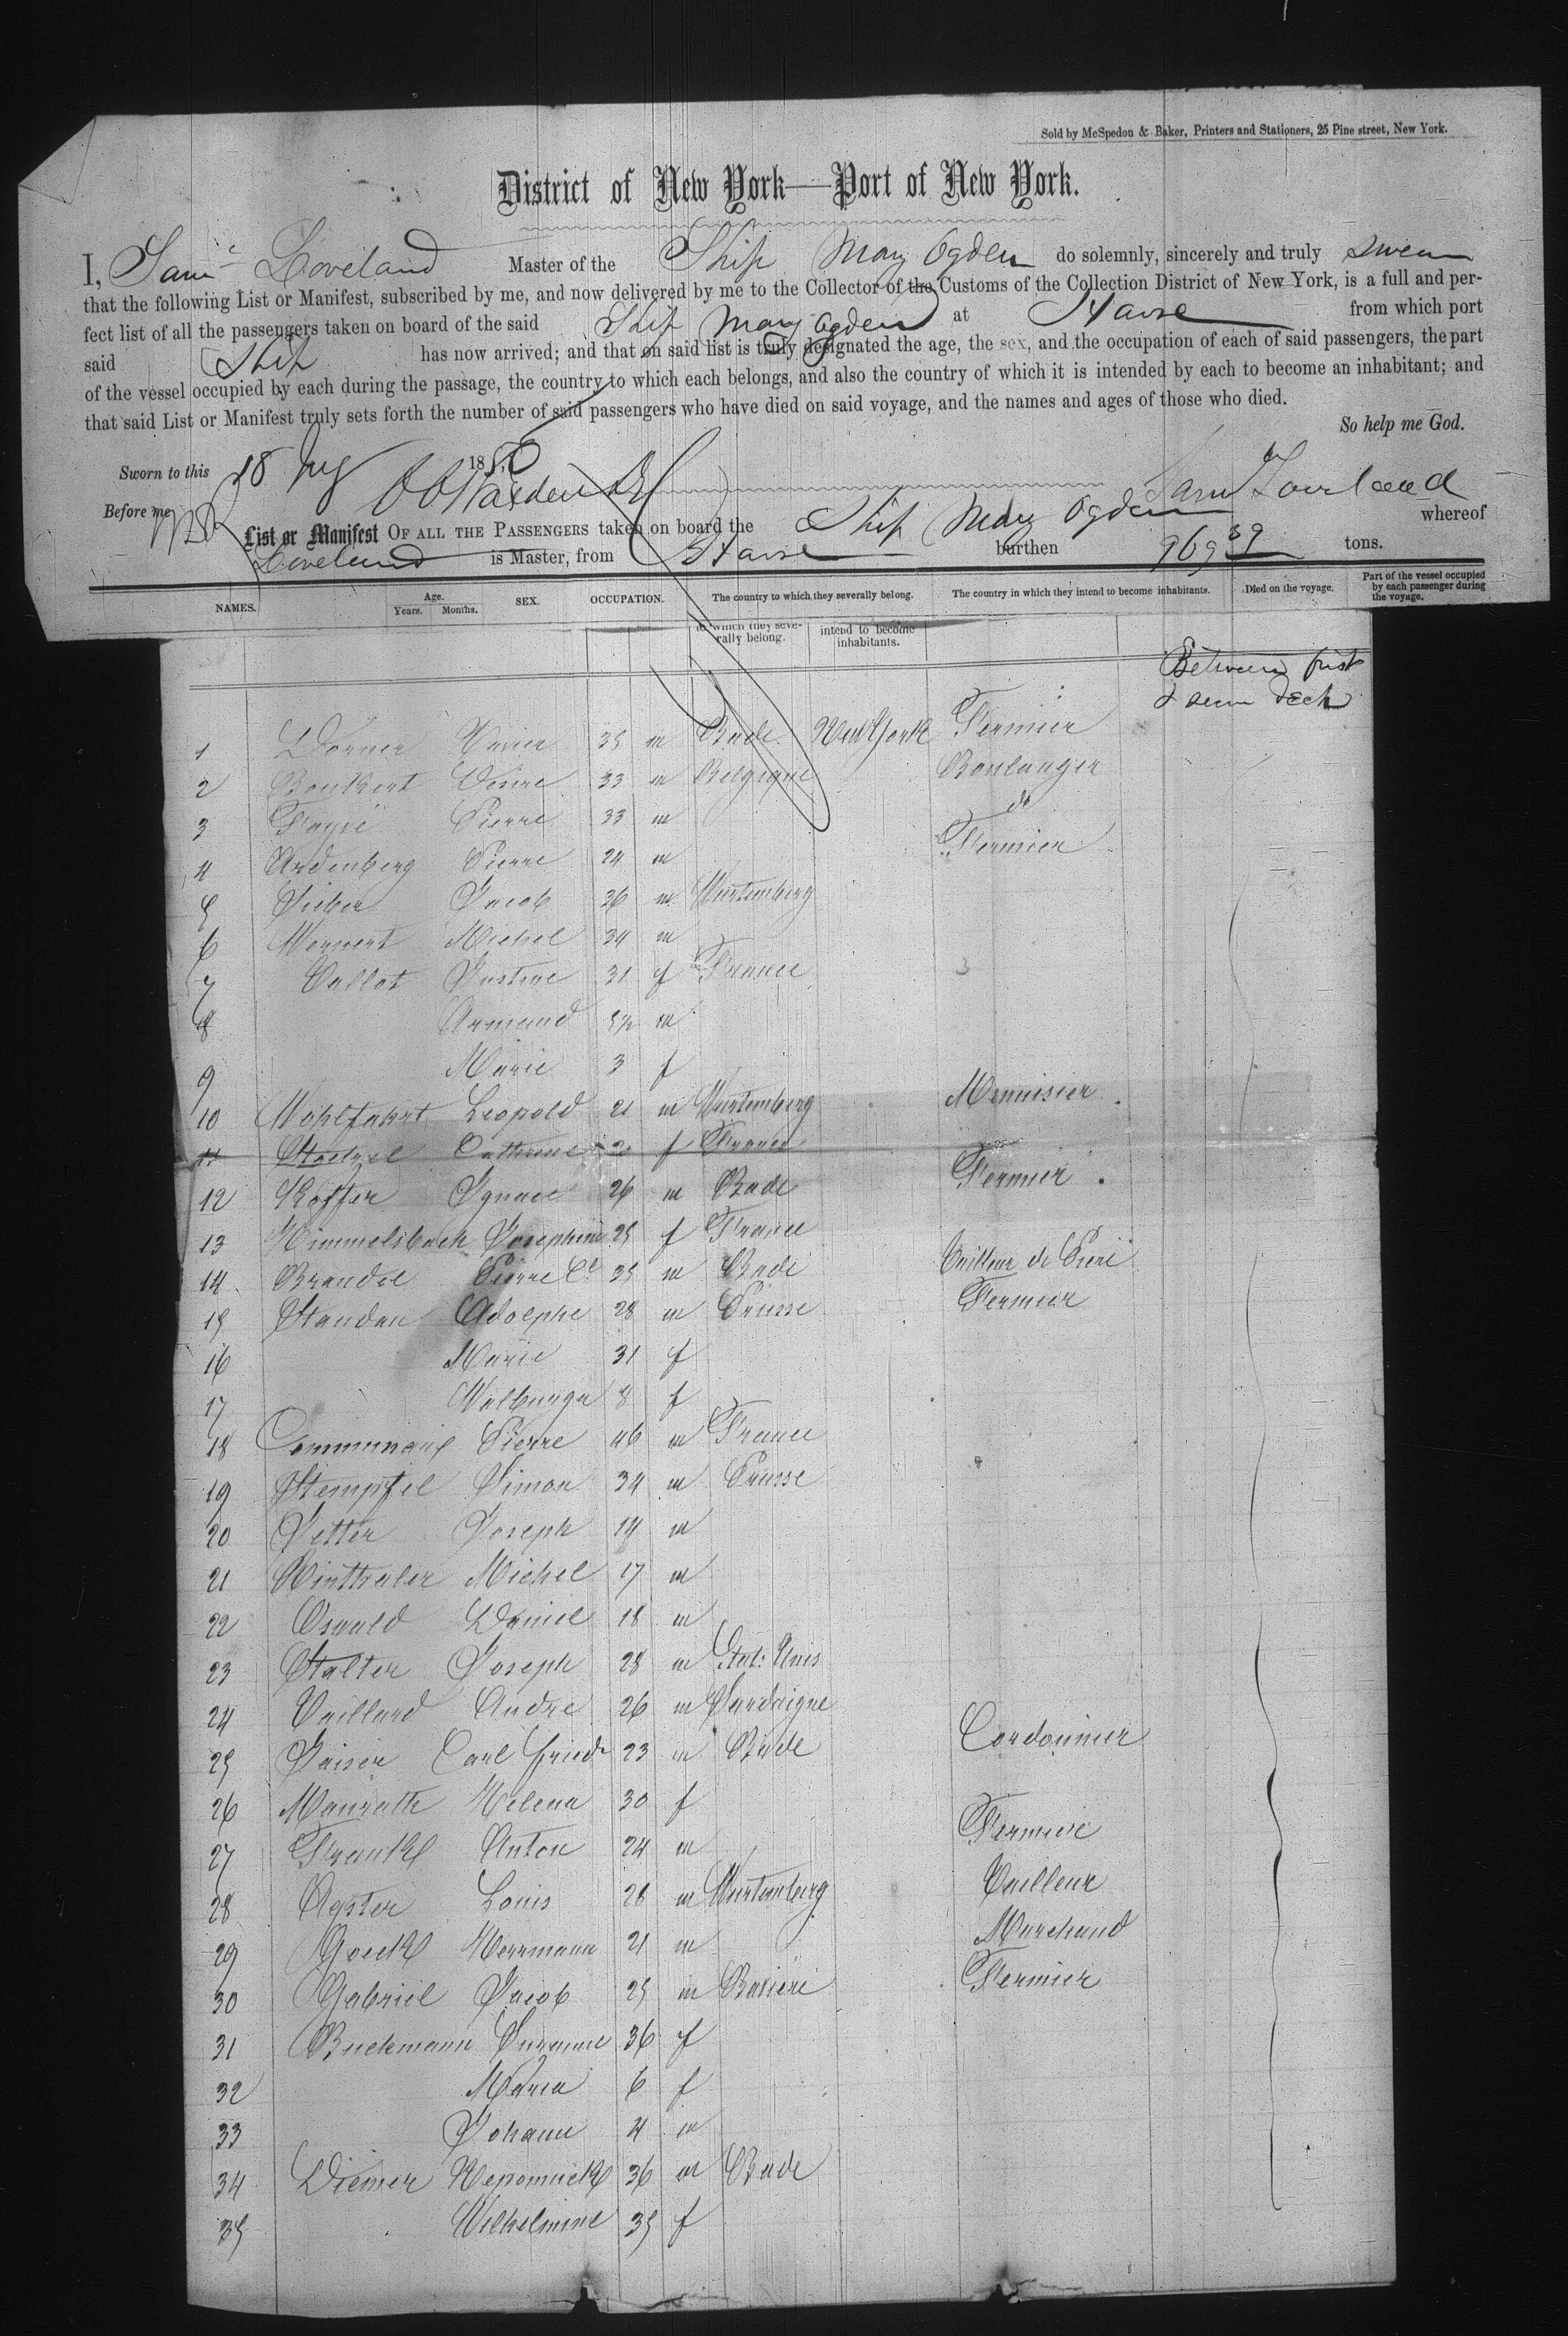 Sold by McSpedon & Baker, Printers and Stationers, 25 Pine street, New York.
District of New York—Port of New York.
I, Saml Loveland Master of the Ship Mary Ogden do solemnly, sincerely and truly swear
that the following List or Manifest, subscribed by me, and now delivered by me to the Collector of the Customs of the Collection District of New York, is a full and per-
fect list of all the passengers taken on board of the said Ship Mary Ogden at Havre from which port
said Ship has now arrived; and that on said list is truly designated the age, the sex, and the occupation of each of said passengers, the part
of the vessel occupied by each during the passage, the country to which each belongs, and also the country of which it is intended by each to become an inhabitant; and
that said List or Manifest truly sets forth the number of said passengers who have died on said voyage, and the names and ages of those who died.
So help me God.
Sworn to this 18 1850
Before me Sam Loveland
List or Manifest OF ALL THE PASSENGERS taken on board the Ship Mary Ogden whereof
Loveland is Master, from Havre burthen 969 39 tons.
NAMES. Age. Years. Months. SEX. OCCUPATION. The country to which they severally belong. The country in which they intend to become inhabitants. Died on the voyage. Part of the vessel occupied by each passenger during the voyage.
to which they seve-rally belong. intend to become inhabitants.
Between first
& deck
1 Dorner Xavier 35 m Bade New York Fermier
2 Boukert Désiré 33 m Belgique Boulanger
3 Pierre 33 m do
4 Ardenberg Pierre 24 m Fermier
5 Sieber Jacob 26 m Wurtemberg
6 Michel 34 m
7 Vallot Justine 31 f France
8 Armand 5½ m
9 Marie 3 f
10 Wohlfahrt Leopold 21 m Wurtemberg Menuisier
11 Catherine 20 f France
12 Koffer Ignace 26 m Bade Fermier
13 Himmelsbach Josephine 25 f France
14 Brandel Pierre Cl 35 m Bade Tailleur de Pierre
15 Standau Adolphe 28 m Prusse Fermier
16 Marie 31 f
17 Walburga 8 f
18 Pierre 46 m France
19 Stempfel Simon 34 m Prusse
20 Jetter Joseph 19 m
21 Rinthaler Michel 17 m
22 Oswald Daniel 18 m
23 Stalter Joseph 28 m Etat: Unis
24 Vaillard Andre 26 m Sardaigne
25 Carl Friedr 23 m Bade Cordonnier
26 Manrath Helena 30 f
27 Frank Anton 24 m Fermier
28 Agster Louis 28 m Wurtemberg Tailleur
29 Goeck Herrmann 21 m Marchand
30 Gabriel Jacob 25 m Baviere Fermier
31 Buckmann Suzanne 36 f
32 Maria 6 f
33 Johann 4 m
34 Diemer Nepomuck 36 m Bade
35 Wilhelmine 35 f